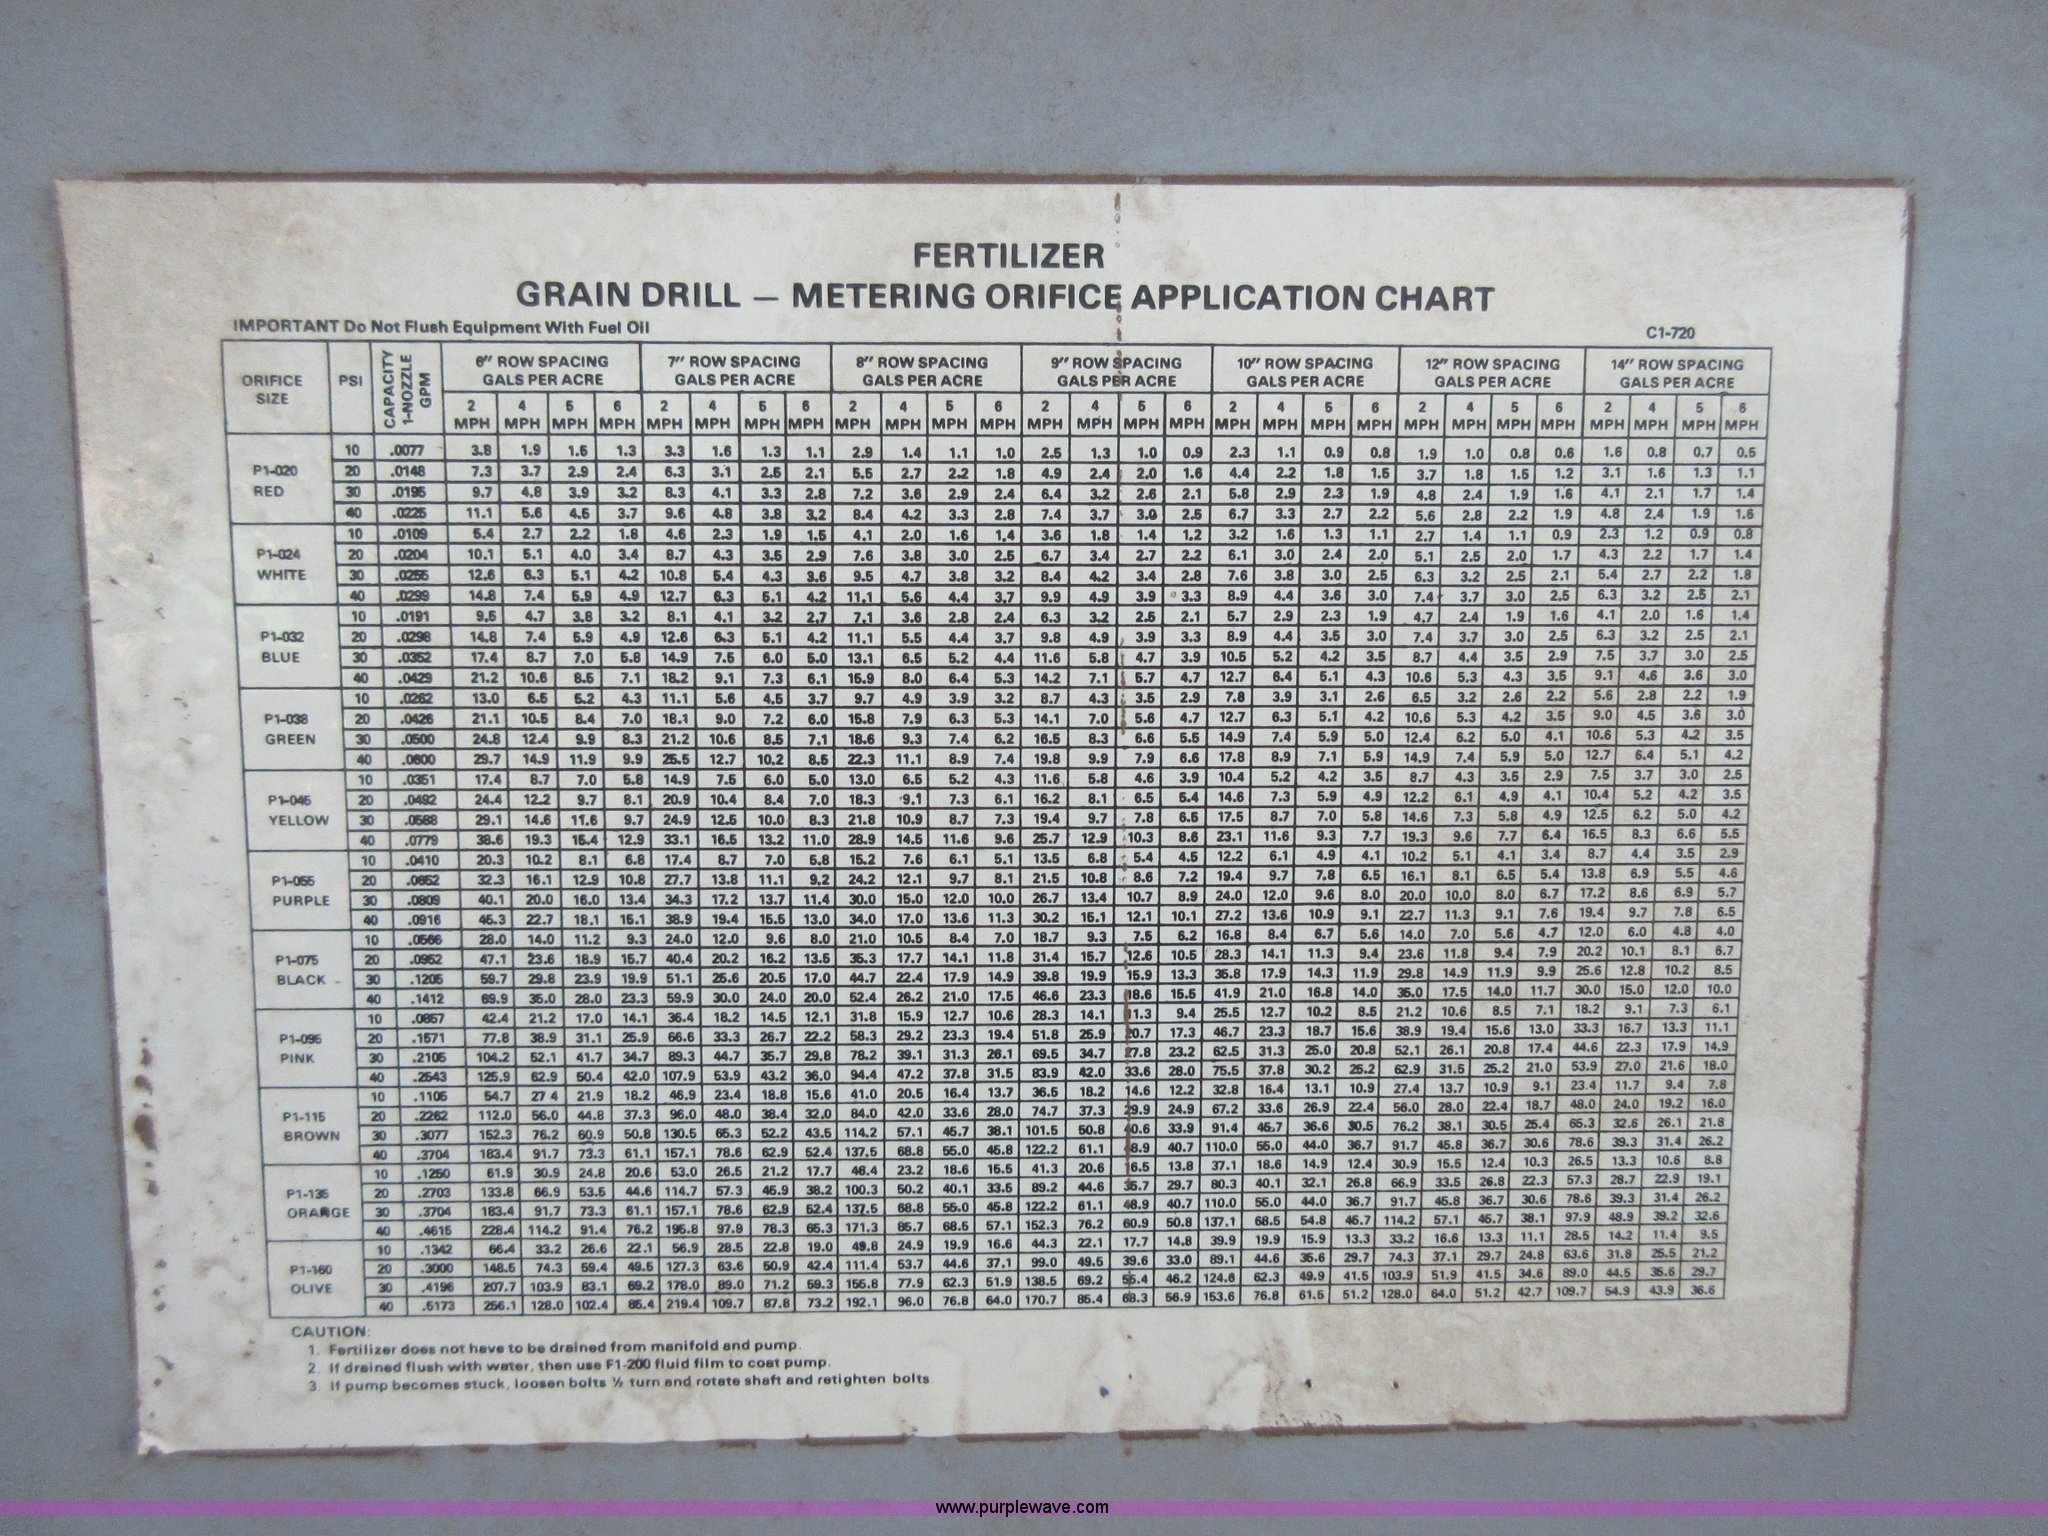 FERTILIZER
GRAIN DRILL — METERING ORIFICE APPLICATION CHART
IMPORTANT Do Not Flush Equipment With Fuel Oil
C1-720
ORIFICE SIZE PSI CAPACITY 1-NOZZLE GPM 6" ROW SPACING GALS PER ACRE 7" ROW SPACING GALS PER ACRE 8" ROW SPACING GALS PER ACRE 9" ROW SPACING GALS PER ACRE 10" ROW SPACING GALS PER ACRE 12" ROW SPACING GALS PER ACRE 14" ROW SPACING GALS PER ACRE
2 MPH 4 MPH 5 MPH 6 MPH 2 MPH 4 MPH 5 MPH 6 MPH 2 MPH 4 MPH 5 MPH 6 MPH 2 MPH 4 MPH 5 MPH 6 MPH 2 MPH 4 MPH 5 MPH 6 MPH 2 MPH 4 MPH 5 MPH 6 MPH 2 MPH 4 MPH 5 MPH 6 MPH
P1-020 RED
10 .0077 3.8 1.9 1.5 1.3 3.3 1.6 1.3 1.1 2.9 1.4 1.1 1.0 2.5 1.3 1.0 0.9 2.3 1.1 0.9 0.8 1.9 1.0 0.8 0.6 1.6 0.8 0.7 0.5
20 .0148 7.3 3.7 2.9 2.4 6.3 3.1 2.5 2.1 5.5 2.7 2.2 1.8 4.9 2.4 2.0 1.6 4.4 2.2 1.8 1.5 3.7 1.8 1.5 1.2 3.1 1.6 1.3 1.1
30 .0195 9.7 4.8 3.9 3.2 8.3 4.1 3.3 2.8 7.2 3.6 2.9 2.4 6.4 3.2 2.6 2.1 5.8 2.9 2.3 1.9 4.8 2.4 1.9 1.6 4.1 2.1 1.7 1.4
40 .0225 11.1 5.6 4.5 3.7 9.6 4.8 3.8 3.2 8.4 4.2 3.3 2.8 7.4 3.7 3.0 2.5 6.7 3.3 2.7 2.2 5.6 2.8 2.2 1.9 4.8 2.4 1.9 1.6
P1-024 WHITE
10 .0109 5.4 2.7 2.2 1.8 4.6 2.3 1.9 1.5 4.1 2.0 1.6 1.4 3.6 1.8 1.4 1.2 3.2 1.6 1.3 1.1 2.7 1.4 1.1 0.9 2.3 1.2 0.9 0.8
20 .0204 10.1 5.1 4.0 3.4 8.7 4.3 3.5 2.9 7.6 3.8 3.0 2.5 6.7 3.4 2.7 2.2 6.1 3.0 2.4 2.0 5.1 2.5 2.0 1.7 4.3 2.2 1.7 1.4
30 .0255 12.6 6.3 5.1 4.2 10.8 5.4 4.3 3.6 9.5 4.7 3.8 3.2 8.4 4.2 3.4 2.8 7.6 3.8 3.0 2.5 6.3 3.2 2.5 2.1 5.4 2.7 2.2 1.8
40 .0299 14.8 7.4 5.9 4.9 12.7 6.3 5.1 4.2 11.1 5.6 4.4 3.7 9.9 4.9 3.9 3.3 8.9 4.4 3.6 3.0 7.4 3.7 3.0 2.5 6.3 3.2 2.5 2.1
P1-032 BLUE
10 .0191 9.5 4.7 3.8 3.2 8.1 4.1 3.2 2.7 7.1 3.6 2.8 2.4 6.3 3.2 2.5 2.1 5.7 2.9 2.3 1.9 4.7 2.4 1.9 1.6 4.1 2.0 1.6 1.4
20 .0298 14.8 7.4 5.9 4.9 12.6 6.3 5.1 4.2 11.1 5.5 4.4 3.7 9.8 4.9 3.9 3.3 8.9 4.4 3.5 3.0 7.4 3.7 3.0 2.5 6.3 3.2 2.5 2.1
30 .0352 17.4 8.7 7.0 5.8 14.9 7.5 6.0 5.0 13.1 6.5 5.2 4.4 11.6 5.8 4.7 3.9 10.5 5.2 4.2 3.5 8.7 4.4 3.5 2.9 7.5 3.7 3.0 2.5
40 .0429 21.2 10.6 8.5 7.1 18.2 9.1 7.3 6.1 15.9 8.0 6.4 5.3 14.2 7.1 5.7 4.7 12.7 6.4 5.1 4.3 10.6 5.3 4.3 3.5 9.1 4.6 3.6 3.0
P1-038 GREEN
10 .0262 13.0 6.5 5.2 4.3 11.1 5.6 4.5 3.7 9.7 4.9 3.9 3.2 8.7 4.3 3.5 2.9 7.8 3.9 3.1 2.6 6.5 3.2 2.6 2.2 5.6 2.8 2.2 1.9
20 .0426 21.1 10.5 8.4 7.0 18.1 9.0 7.2 6.0 15.8 7.9 6.3 5.3 14.1 7.0 5.6 4.7 12.7 6.3 5.1 4.2 10.6 5.3 4.2 3.5 9.0 4.5 3.6 3.0
30 .0500 24.8 12.4 9.9 8.3 21.2 10.6 8.5 7.1 18.6 9.3 7.4 6.2 16.5 8.3 6.6 5.5 14.9 7.4 5.9 5.0 12.4 6.2 5.0 4.1 10.6 5.3 4.2 3.5
40 .0600 29.7 14.9 11.9 9.9 25.5 12.7 10.2 8.5 22.3 11.1 8.9 7.4 19.8 9.9 7.9 6.6 17.8 8.9 7.1 5.9 14.9 7.4 5.9 5.0 12.7 6.4 5.1 4.2
P1-045 YELLOW
10 .0351 17.4 8.7 7.0 5.8 14.9 7.5 6.0 5.0 13.0 6.5 5.2 4.3 11.6 5.8 4.6 3.9 10.4 5.2 4.2 3.5 8.7 4.3 3.5 2.9 7.5 3.7 3.0 2.5
20 .0492 24.4 12.2 9.7 8.1 20.9 10.4 8.4 7.0 18.3 9.1 7.3 6.1 16.2 8.1 6.5 5.4 14.6 7.3 5.9 4.9 12.2 6.1 4.9 4.1 10.4 5.2 4.2 3.5
30 .0588 29.1 14.6 11.6 9.7 24.9 12.5 10.0 8.3 21.8 10.9 8.7 7.3 19.4 9.7 7.8 6.5 17.5 8.7 7.0 5.8 14.6 7.3 5.8 4.9 12.5 6.2 5.0 4.2
40 .0779 38.6 19.3 15.4 12.9 33.1 16.5 13.2 11.0 28.9 14.5 11.6 9.6 25.7 12.9 10.3 8.6 23.1 11.6 9.3 7.7 19.3 9.6 7.7 6.4 16.5 8.3 6.6 5.5
P1-055 PURPLE
10 .0410 20.3 10.2 8.1 6.8 17.4 8.7 7.0 5.8 15.2 7.6 6.1 5.1 13.5 6.8 5.4 4.5 12.2 6.1 4.9 4.1 10.2 5.1 4.1 3.4 8.7 4.4 3.5 2.9
20 .0652 32.3 16.1 12.9 10.8 27.7 13.8 11.1 9.2 24.2 12.1 9.7 8.1 21.5 10.8 8.6 7.2 19.4 9.7 7.8 6.5 16.1 8.1 6.5 5.4 13.8 6.9 5.5 4.6
30 .0809 40.1 20.0 16.0 13.4 34.3 17.2 13.7 11.4 30.0 15.0 12.0 10.0 26.7 13.4 10.7 8.9 24.0 12.0 9.6 8.0 20.0 10.0 8.0 6.7 17.2 8.6 6.9 5.7
40 .0916 45.3 22.7 18.1 15.1 38.9 19.4 15.5 13.0 34.0 17.0 13.6 11.3 30.2 15.1 12.1 10.1 27.2 13.6 10.9 9.1 22.7 11.3 9.1 7.6 19.4 9.7 7.8 6.5
P1-075 BLACK
10 .0566 28.0 14.0 11.2 9.3 24.0 12.0 9.6 8.0 21.0 10.5 8.4 7.0 18.7 9.3 7.5 6.2 16.8 8.4 6.7 5.6 14.0 7.0 5.6 4.7 12.0 6.0 4.8 4.0
20 .0952 47.1 23.6 18.9 15.7 40.4 20.2 16.2 13.5 35.3 17.7 14.1 11.8 31.4 15.7 12.6 10.5 28.3 14.1 11.3 9.4 23.6 11.8 9.4 7.9 20.2 10.1 8.1 6.7
30 .1205 59.7 29.8 23.9 19.9 51.1 25.6 20.5 17.0 44.7 22.4 17.9 14.9 39.8 19.9 15.9 13.3 35.8 17.9 14.3 11.9 29.8 14.9 11.9 9.9 25.6 12.8 10.2 8.5
40 .1412 69.9 35.0 28.0 23.3 59.9 30.0 24.0 20.0 52.4 26.2 21.0 17.5 46.6 23.3 18.6 15.5 41.9 21.0 16.8 14.0 35.0 17.5 14.0 11.7 30.0 15.0 12.0 10.0
P1-095 PINK
10 .0857 42.4 21.2 17.0 14.1 36.4 18.2 14.5 12.1 31.8 15.9 12.7 10.6 28.3 14.1 11.3 9.4 25.5 12.7 10.2 8.5 21.2 10.6 8.5 7.1 18.2 9.1 7.3 6.1
20 .1571 77.8 38.9 31.1 25.9 66.6 33.3 26.7 22.2 58.3 29.2 23.3 19.4 51.8 25.9 20.7 17.3 46.7 23.3 18.7 15.6 38.9 19.4 15.6 13.0 33.3 16.7 13.3 11.1
30 .2105 104.2 52.1 41.7 34.7 89.3 44.7 35.7 29.8 78.2 39.1 31.3 26.1 69.5 34.7 27.8 23.2 62.5 31.3 25.0 20.8 52.1 26.1 20.8 17.4 44.6 22.3 17.9 14.9
40 .2543 125.9 62.9 50.4 42.0 107.9 53.9 43.2 36.0 94.4 47.2 37.8 31.5 83.9 42.0 33.6 28.0 75.5 37.8 30.2 25.2 62.9 31.5 25.2 21.0 53.9 27.0 21.6 18.0
P1-115 BROWN
10 .1105 54.7 27 4 21.9 18.2 46.9 23.4 18.8 15.6 41.0 20.5 16.4 13.7 36.5 18.2 14.6 12.2 32.8 16.4 13.1 10.9 27.4 13.7 10.9 9.1 23.4 11.7 9.4 7.8
20 .2262 112.0 56.0 44.8 37.3 96.0 48.0 38.4 32.0 84.0 42.0 33.6 28.0 74.7 37.3 29.9 24.9 67.2 33.6 26.9 22.4 56.0 28.0 22.4 18.7 48.0 24.0 19.2 16.0
30 .3077 152.3 76.2 60.9 50.8 130.5 65.3 52.2 43.5 114.2 57.1 45.7 38.1 101.5 50.8 40.6 33.9 91.4 45.7 36.6 30.5 76.2 38.1 30.5 25.4 65.3 32.6 26.1 21.8
40 .3704 183.4 91.7 73.3 61.1 157.1 78.6 62.9 52.4 137.5 68.8 55.0 45.8 122.2 61.1 48.9 40.7 110.0 55.0 44.0 36.7 91.7 45.8 36.7 30.6 78.6 39.3 31.4 26.2
P1-135 ORANGE
10 .1250 61.9 30.9 24.8 20.6 53.0 26.5 21.2 17.7 46.4 23.2 18.6 15.5 41.3 20.6 16.5 13.8 37.1 18.6 14.9 12.4 30.9 15.5 12.4 10.3 26.5 13.3 10.6 8.8
20 .2703 133.8 66.9 53.5 44.6 114.7 57.3 45.9 38.2 100.3 50.2 40.1 33.5 89.2 44.6 35.7 29.7 80.3 40.1 32.1 26.8 66.9 33.5 26.8 22.3 57.3 28.7 22.9 19.1
30 .3704 183.4 91.7 73.3 61.1 157.1 78.6 62.9 52.4 137.5 68.8 55.0 45.8 122.2 61.1 48.9 40.7 110.0 55.0 44.0 36.7 91.7 45.8 36.7 30.6 78.6 39.3 31.4 26.2
40 .4615 228.4 114.2 91.4 76.2 195.8 97.9 78.3 65.3 171.3 85.7 68.5 57.1 152.3 76.2 60.9 50.8 137.1 68.5 54.8 45.7 114.2 57.1 45.7 38.1 97.9 48.9 39.2 32.6
P1-160 OLIVE
10 .1342 66.4 33.2 26.6 22.1 56.9 28.5 22.8 19.0 49.8 24.9 19.9 16.6 44.3 22.1 17.7 14.8 39.9 19.9 15.9 13.3 33.2 16.6 13.3 11.1 28.5 14.2 11.4 9.5
20 .3000 148.5 74.3 59.4 49.5 127.3 63.6 50.9 42.4 111.4 53.7 44.6 37.1 99.0 49.5 39.6 33.0 89.1 44.6 35.6 29.7 74.3 37.1 29.7 24.8 63.6 31.8 25.5 21.2
30 .4196 207.7 103.9 83.1 69.2 178.0 89.0 71.2 59.3 155.8 77.9 62.3 51.9 138.5 69.2 55.4 46.2 124.6 62.3 49.9 41.5 103.9 51.9 41.5 34.6 89.0 44.5 35.6 29.7
40 .5173 256.1 128.0 102.4 85.4 219.4 109.7 87.8 73.2 192.1 96.0 76.8 64.0 170.7 85.4 68.3 56.9 153.6 76.8 61.5 51.2 128.0 64.0 51.2 42.7 109.7 54.9 43.9 36.6
CAUTION:
1. Fertilizer does not have to be drained from manifold and pump.
2. If drained flush with water, then use F1-200 fluid film to coat pump.
3. If pump becomes stuck, loosen bolts ½ turn and rotate shaft and retighten bolts.
www.purplewave.com